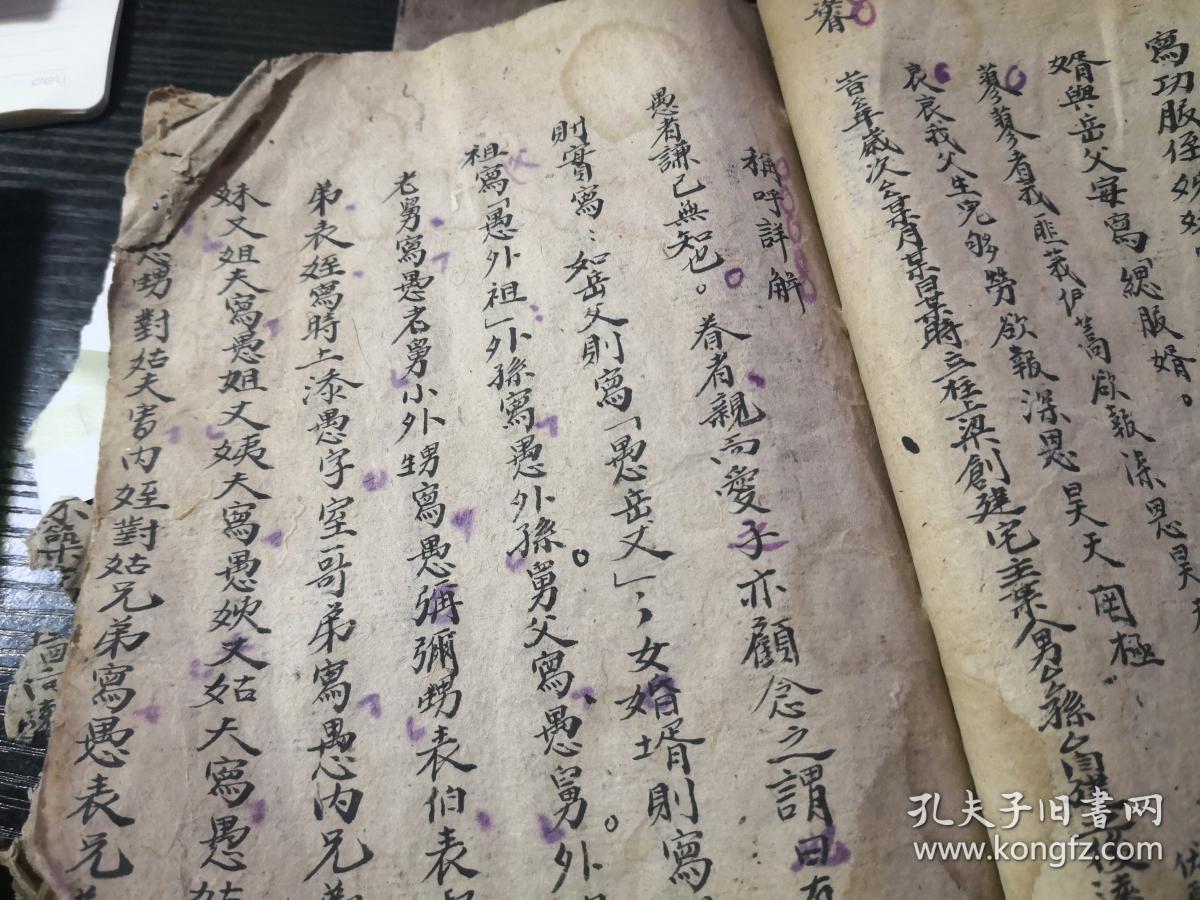 寫功服侄
婿與岳父母寫「總服婿。
蓼蓼者我匪莪伊蒿欲報深恩昊天
哀哀我父生児劬勞欲報深恩昊天罔極
昔年歲次公某月某日某時立柱上梁創建宅主某人男公孫
稱呼詳解
愚者謙己無知也。眷者親而愛子亦顧念之謂曰
則實寫:如岳父則寫「愚岳父」,女婿壻則寫
祖寫「愚外祖」外孫寫愚外孫。舅父寫愚舅。外
老舅寫愚老舅小外甥寫愚彌甥表伯表
弟表姪寫時上添愚字室哥弟寫愚內兄
妹丈姐夫寫愚姐丈姨夫寫愚姨丈姑大寫愚姑
愚甥對姑夫書內姪對姑兄弟寫愚表兄
deli
孔夫子旧书网
www.kongfz.com